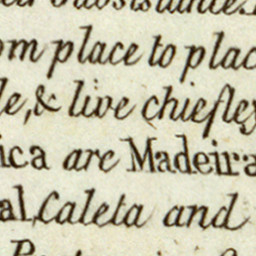 om place to plac
le, & live chiefley
ica are Madeira
al, Caleta and